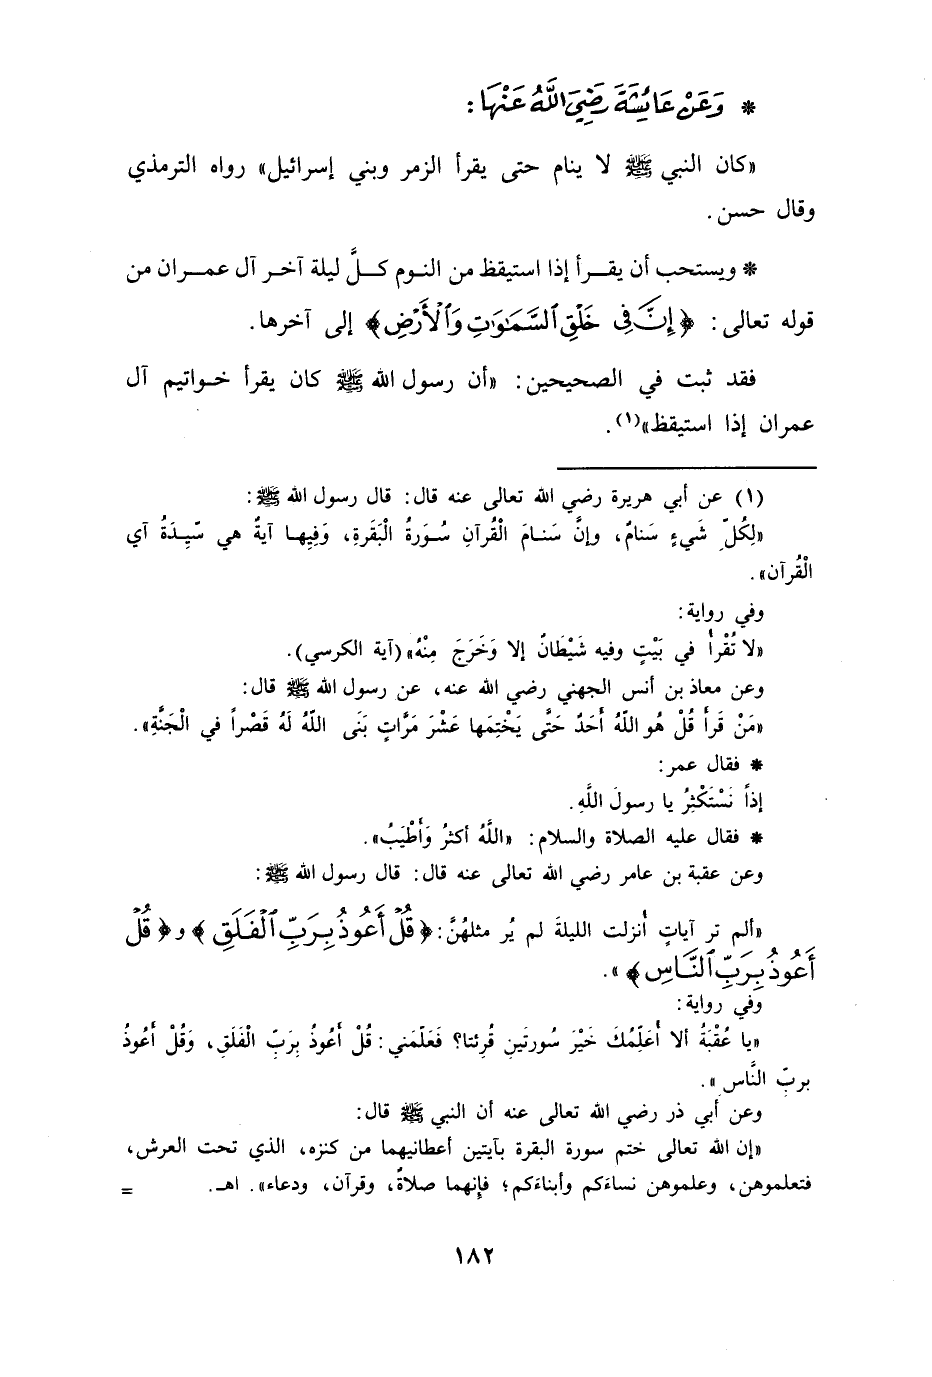 * وَعَنْ عَائِشَةَ رَضِيَ اللَّهُ عَنْهَا:
«كان النبي ﷺ لا ينام حتى يقرأ الزمر وبني إسرائيل» رواه الترمذي
وقال حسن.
* ويستحب أن يقرأ إذا استيقظ من النوم كلَّ ليلة آخر آل عمران من
قوله تعالى: ﴿إِنَّ فِي خَلْقِ ٱلسَّمَٰوَٰتِ وَٱلْأَرْضِ﴾ إلى آخرها.
فقد ثبت في الصحيحين: «أن رسول الله ﷺ كان يقرأ خواتيم آل
عمران إذا استيقظ»(١).
(١) عن أبي هريرة رضي الله تعالى عنه قال: قال رسول الله ﷺ:
«لِكُلِّ شَيءٍ سَنامٌ، وإنَّ سَنامَ الْقُرآنِ سُورَةُ الْبَقَرةِ، وَفِيها آيةٌ هي سَيِّدَةُ آي
الْقُرآن».
وفي رواية:
«لا تُقْرأُ في بَيْتٍ وفيه شَيْطَانٌ إلا وَخَرَجَ مِنْهُ» (آية الكرسي).
وعن معاذ بن أنس الجهني رضي الله عنه، عن رسول الله ﷺ قال:
«مَنْ قَرأَ قُلْ هُو اللّهُ أَحَدٌ حَتَّى يَخْتِمَها عَشْرَ مَرَّاتٍ بَنَى اللّهُ لَهُ قَصْراً في الْجَنَّةِ».
* فقال عمر:
إذاً نَسْتَكْثِرُ يا رسولَ اللَّهِ.
* فقال عليه الصلاة والسلام: «اللَّهُ أكثرُ وَأَطْيَبُ».
وعن عقبة بن عامر رضي الله تعالى عنه قال: قال رسول الله ﷺ:
«ألم تر آياتٍ أُنزلت الليلةَ لم يُر مثلهُنَّ: ﴿قُلْ أَعُوذُ بِرَبِّ ٱلْفَلَقِ﴾ و﴿قُلْ
أَعُوذُ بِرَبِّ ٱلنَّاسِ﴾».
وفي رواية:
«يا عُقْبَةُ ألا أُعَلِّمُكَ خَيْرَ سُورتَينِ قُرِئتا؟ فَعَلَّمَني: قُلْ أَعُوذُ بِرَبِّ الْفَلَقِ، وَقُلْ أَعُوذُ
بربِّ النَّاسِ».
وعن أبي ذر رضي الله تعالى عنه أن النبي ﷺ قال:
«إن الله تعالى ختم سورة البقرة بآيتين أعطانيهما من كنزه، الذي تحت العرش،
فتعلموهن، وعلموهن نساءَكم وأبناءَكم؛ فإنهما صلاةٌ، وقرآن، ودعاء». اهـ. =
١٨٢